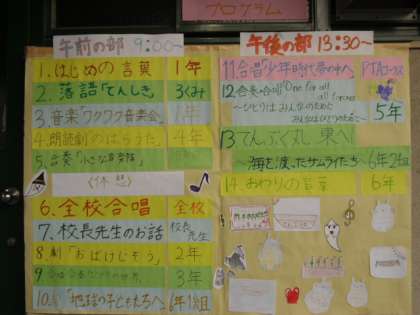 プログラム
午前の部 9:00〜
1.はじめの言葉 1年
2.落語「てんしき」 3くみ
3.音楽「ワクワク音楽会」 1年
4.朗読劇「のはらうた」 4年
5.合奏「小さな音楽隊」
〈休憩〉
6.全校合唱 全校
7.校長先生のお話 校長先生
8.劇「おばけむそう」 2年
9 3年
10.「地球の子どもたちへ」6年1組
午後の部 13:30〜
11.合唱「少年時代」 PTAコーラス
12合奏・合唱「One for all all for one
〜ひとりはみんなのために
みんなはひとりのために〜 5年
13てんぷく丸 東へ!
海を渡ったサムライたち〜 6年2組
14.おわりの言葉 6年